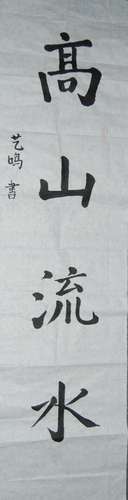 高山流水
艺鸣书